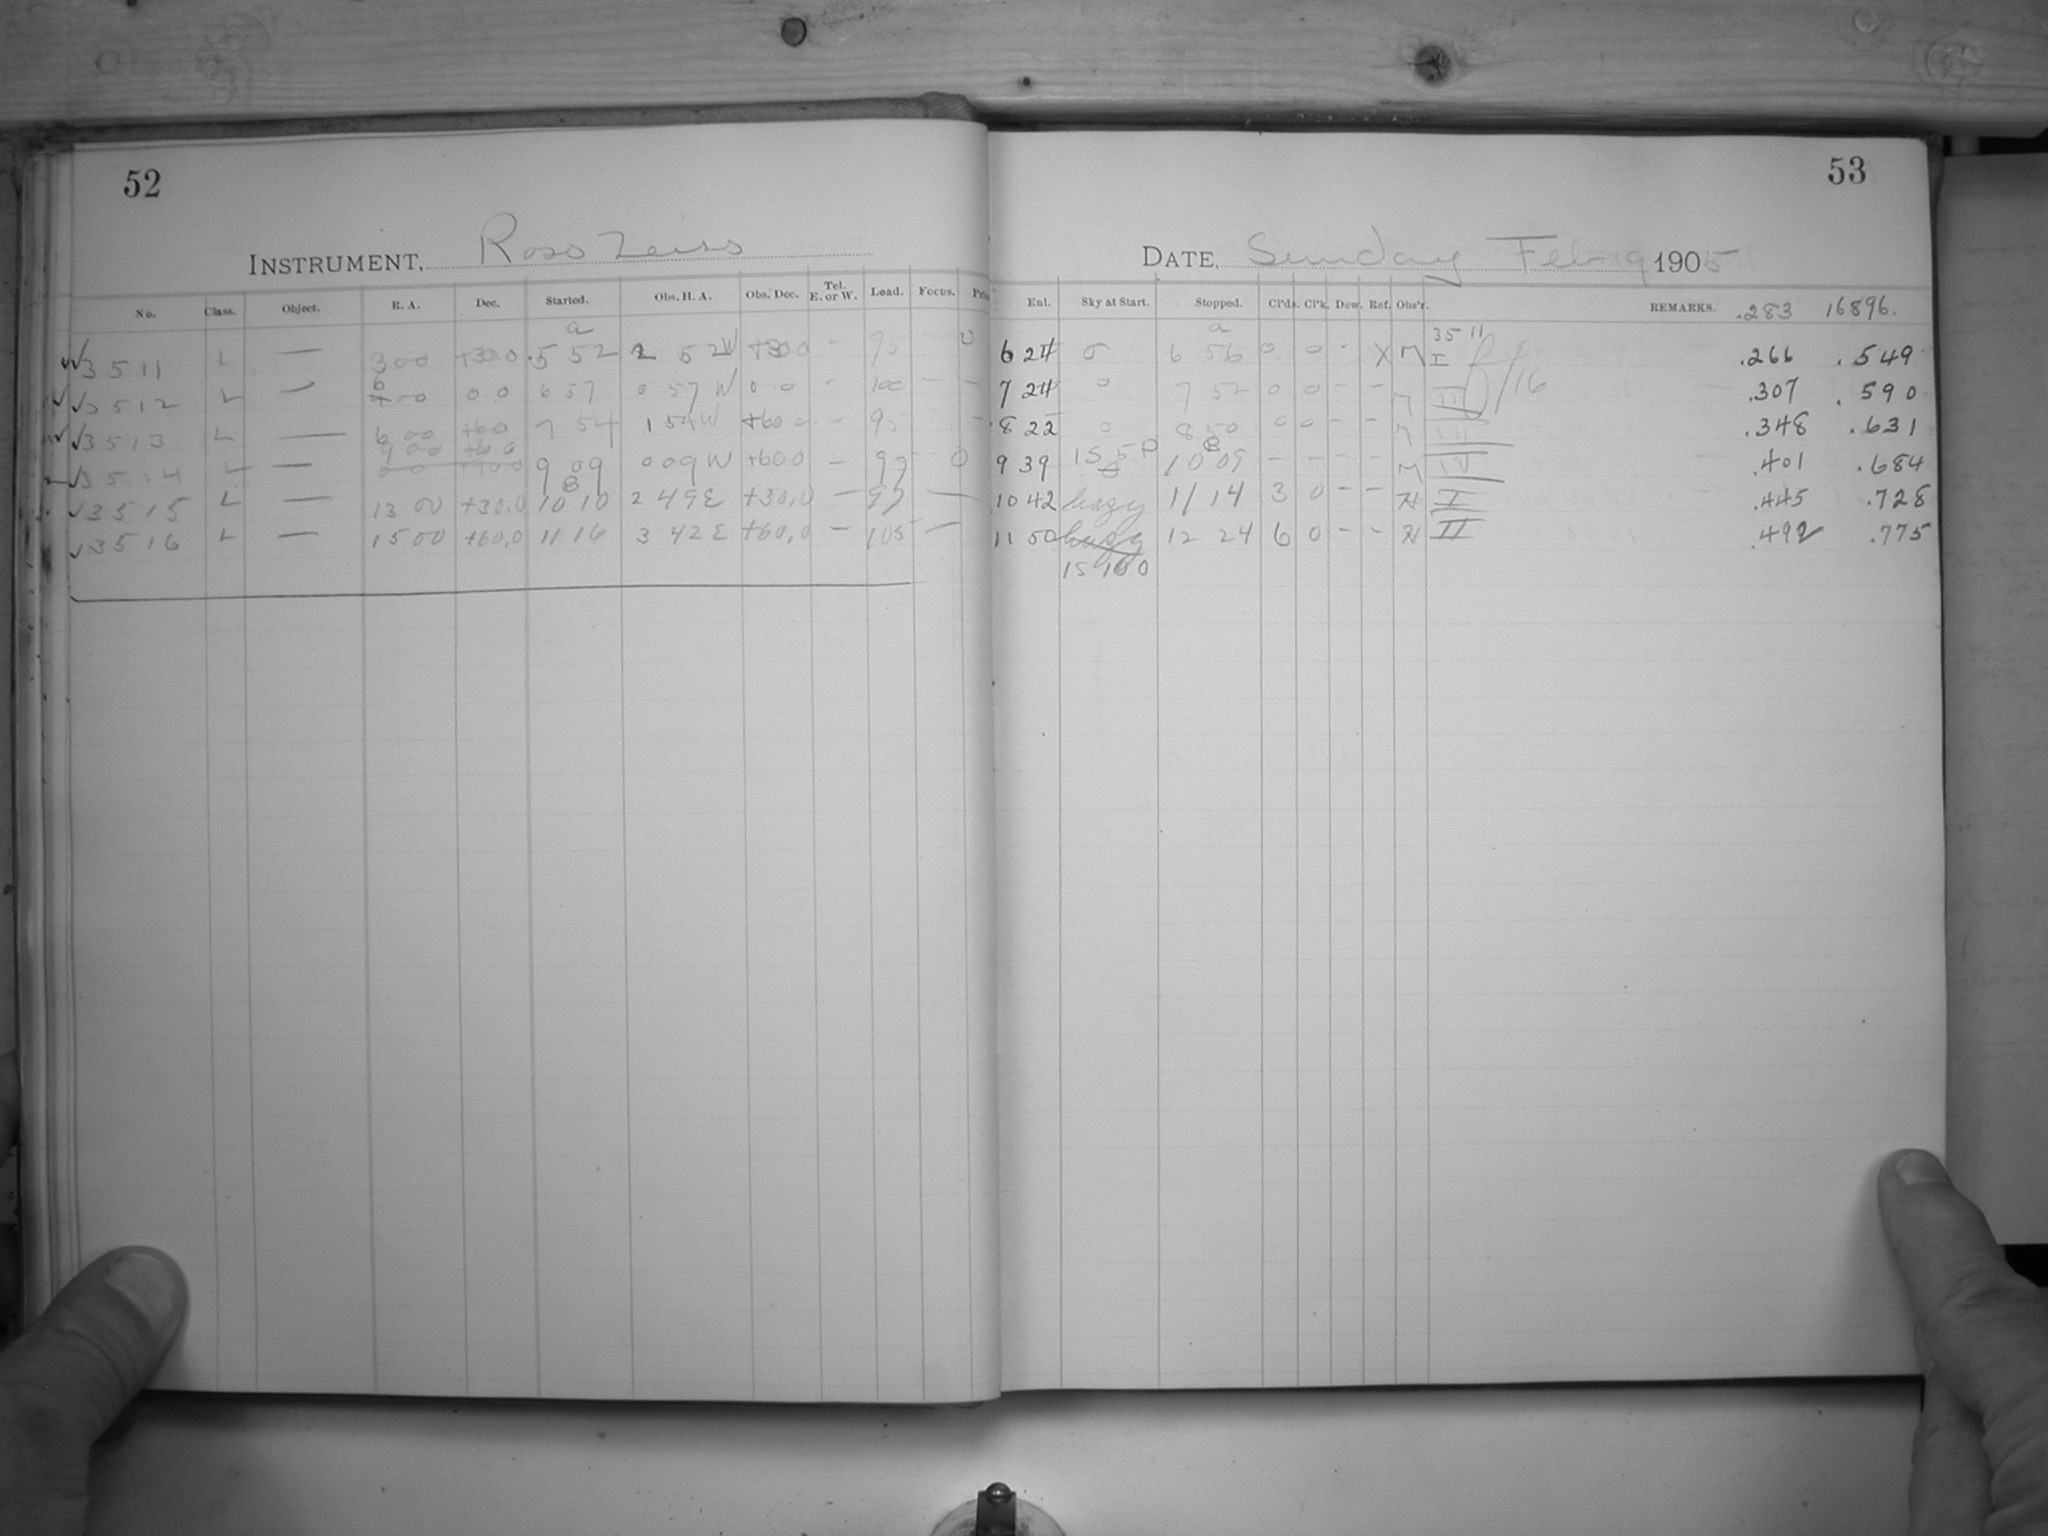 52
INSTRUMENT, Ross Zeiss
No. Class. Object. R. A. Dec. Started. Obs. H. A. Obs. Dec. Tel. E. or W. Load. Focus.
a
√3511 L — 3 00 +30.0 5 52 2 52W +30.0 - 95 - 0
√3512 L — 6 00 0.0 6 57 0 57 W 0.0 - 100 - -
√3513 L — 6 00 +60 7 54 1 54W +60.0 - 95 -
9 00 +60.0
√3514 L — 9 09 0 09 W +60.0 - 99 0
B
√3515 L — 13 00 +30.0 10 10 2 49 E +30.0 — 95 —
√3516 L — 15 00 +60.0 11 16 3 42 E +60.0 — 105 —
53
DATE, Sunday Feb 19 1905
Ent. Sky at Start. Stopped. Cl'ds. Cl'k. Dew. Ref. Obs'r. REMARKS. .283 16896.
a 3511
6 24 0 6 56 0 0 - X M I f/16 .266 .549
7 24 0 7 52 0 0 - - M III .307 .590
8 22 0 8 50 0 0 - - M III .348 .631
15 5 P B
9 39 10 09 - - - - M IV .401 .684
10 42 hazy 11 14 3 0 - - H I .445 .728
11 50 hazy 12 24 6 0 - - H II .492 .775
15 100